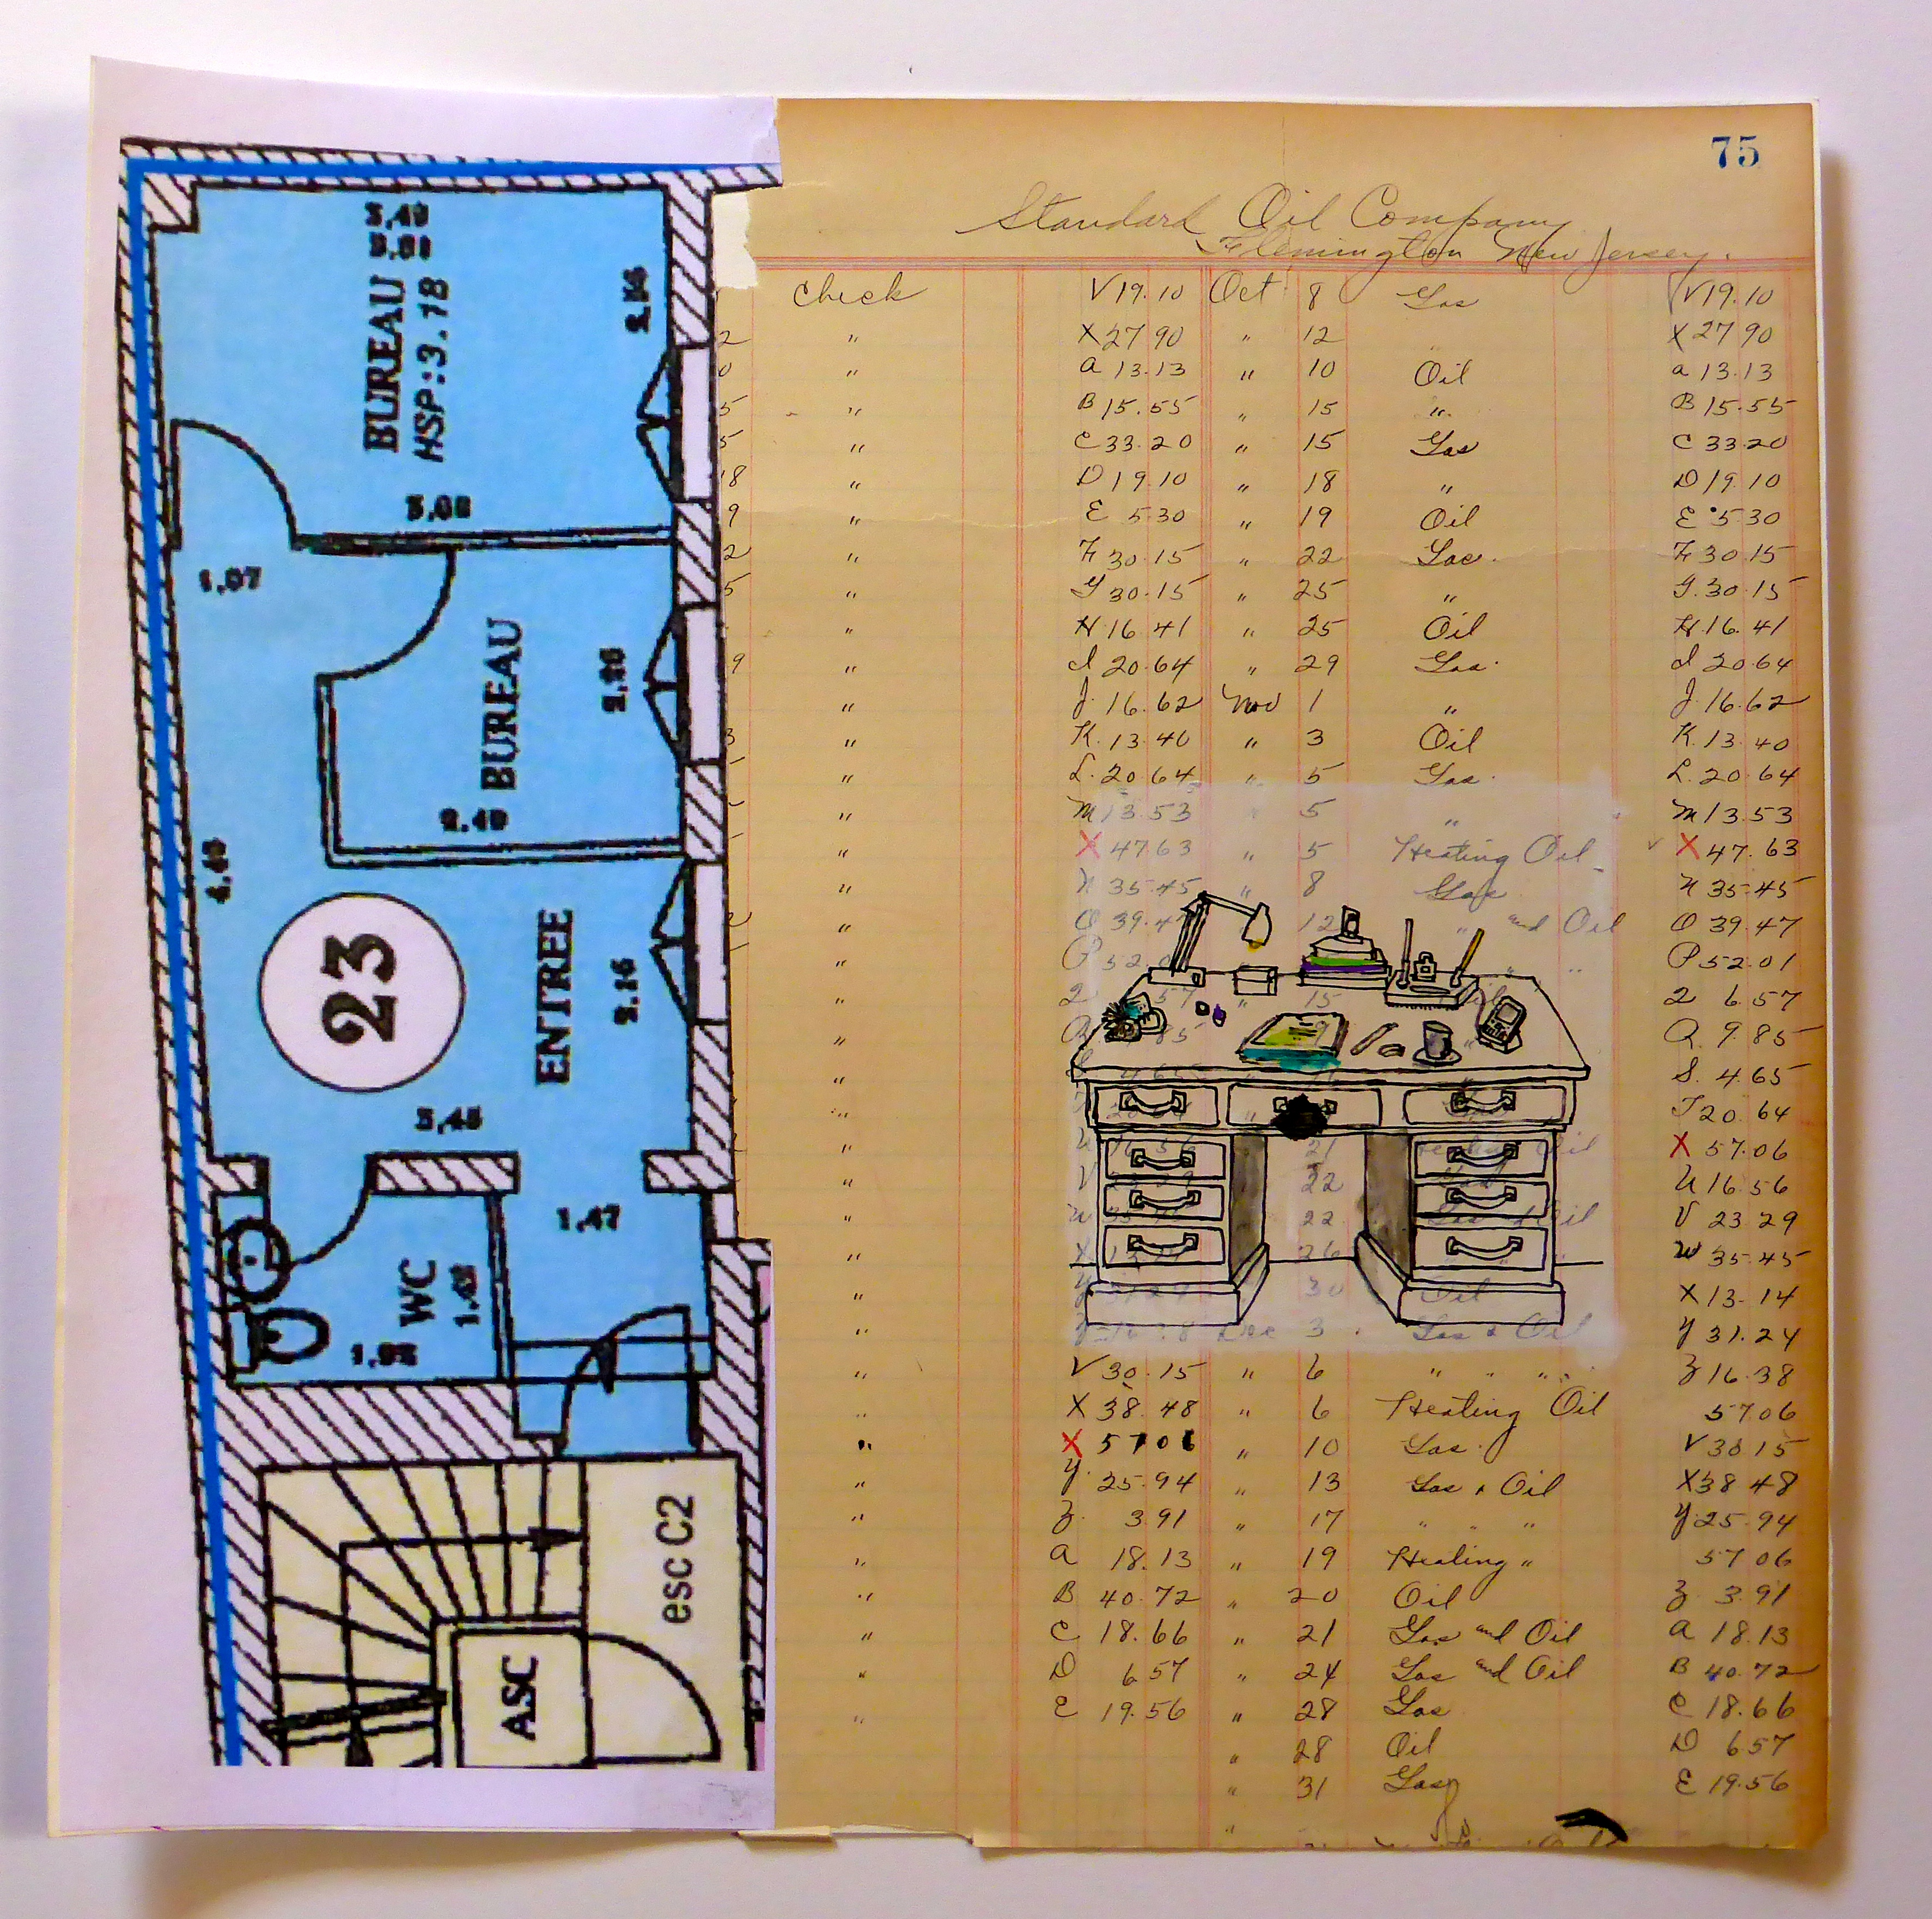 75
Standard Oil Company
Flemington New Jersey.
Check V 19.10 Oct 8 Gas V 19.10
2 " X 27 90 " 12 X 27 90
0 " a 13.13 " 10 Oil a 13.13
5 " B 15.55 " 15 " B 15.55
5 " C 33.20 " 15 Gas C 33.20
18 " D 19 10 " 18 " D 19 10
9 " E 5.30 " 19 Oil E 5 30
2 " F 30.15 " 22 Gas. F 30.15
5 " G 30.15 " 25 " G. 30.15
" H 16 41 " 25 Oil H. 16. 41
9 " I 20.64 " 29 Gas. I 20.64
" J. 16.62 Nov 1 " J. 16.62
3 " K. 13.40 " 3 Oil K. 13.40
" L. 20.64 " 5 Gas. L. 20.64
" M 13.53 " 5 " M 13.53
" X 47 63 " 5 Heating Oil X 47. 63
" N 35.45 " 8 Gas N 35.45
" O 39.47 " 12 " and Oil O 39.47
" P 52.0 " " P 52.01
" 2 57 " 15 Oil 2 6.57
" Q 85 Q. 9.85
" 4 65 S. 4.65
" T 20. 64
" 21 Oil X 57.06
" V 22 U 16.56
" 22 Oil V 23 29
" X 26 W 35.45
" 30 Oil X 13. 14
" Dec 3 Gas & Oil Y 31.24
" V 30.15 " 6 " " " Z 16.38
" X 38.48 " 6 Heating Oil 57.06
" X 57 06 " 10 Gas. V 30 15
" Y 25.94 " 13 Gas & Oil X 38 48
" Z. 3.91 " 17 " " " Y 25.94
" a 18.13 " 19 Heating " 57 06
" B 40.72 " 20 Oil Z 3.91
" C 18.66 " 21 Gas and Oil a 18.13
" D 6.57 " 24 Gas and Oil B 40.72
" E 19.56 " 28 Gas C 18.66
" 28 Oil D 6.57
" 31 Gas E 19.56
"
BUREAU
HSP:3.18
3,08
1,07
BUREAU
2.40
4,40
23
ENTREE
2.16
3,45
1,47
WC
esc C2
ASC